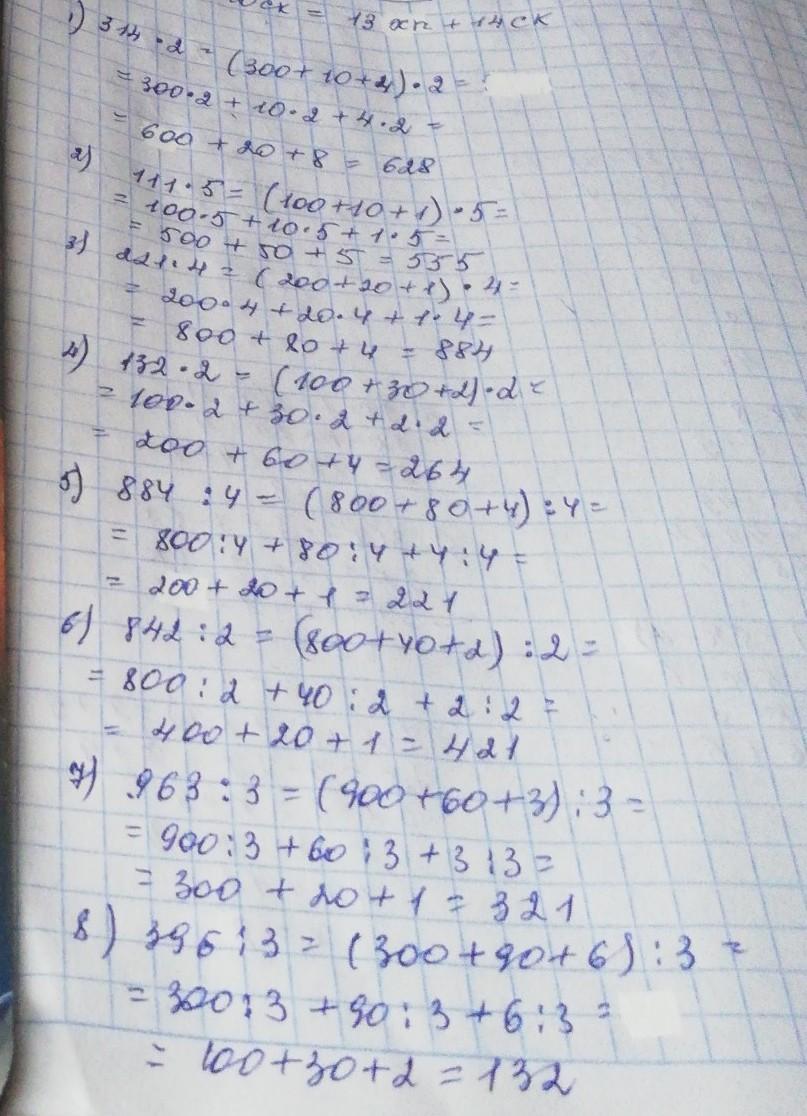 ск = 13 хп + 14 ск
1) 314 · 2 = (300 + 10 + 4) · 2 =
= 300 · 2 + 10 · 2 + 4 · 2 =
= 600 + 20 + 8 = 628
2) 111 · 5 = (100 + 10 + 1) · 5 =
= 100 · 5 + 10 · 5 + 1 · 5 =
= 500 + 50 + 5 = 555
3) 221 · 4 = (200 + 20 + 1) · 4 =
= 200 · 4 + 20 · 4 + 1 · 4 =
= 800 + 80 + 4 = 884
4) 132 · 2 = (100 + 30 + 2) · 2 =
= 100 · 2 + 30 · 2 + 2 · 2 =
= 200 + 60 + 4 = 264
5) 884 : 4 = (800 + 80 + 4) : 4 =
= 800 : 4 + 80 : 4 + 4 : 4 =
= 200 + 20 + 1 = 221
6) 842 : 2 = (800 + 40 + 2) : 2 =
= 800 : 2 + 40 : 2 + 2 : 2 =
= 400 + 20 + 1 = 421
7) 963 : 3 = (900 + 60 + 3) : 3 =
= 900 : 3 + 60 : 3 + 3 : 3 =
= 300 + 20 + 1 = 321
8) 396 : 3 = (300 + 90 + 6) : 3 =
= 300 : 3 + 90 : 3 + 6 : 3 =
= 100 + 30 + 2 = 132